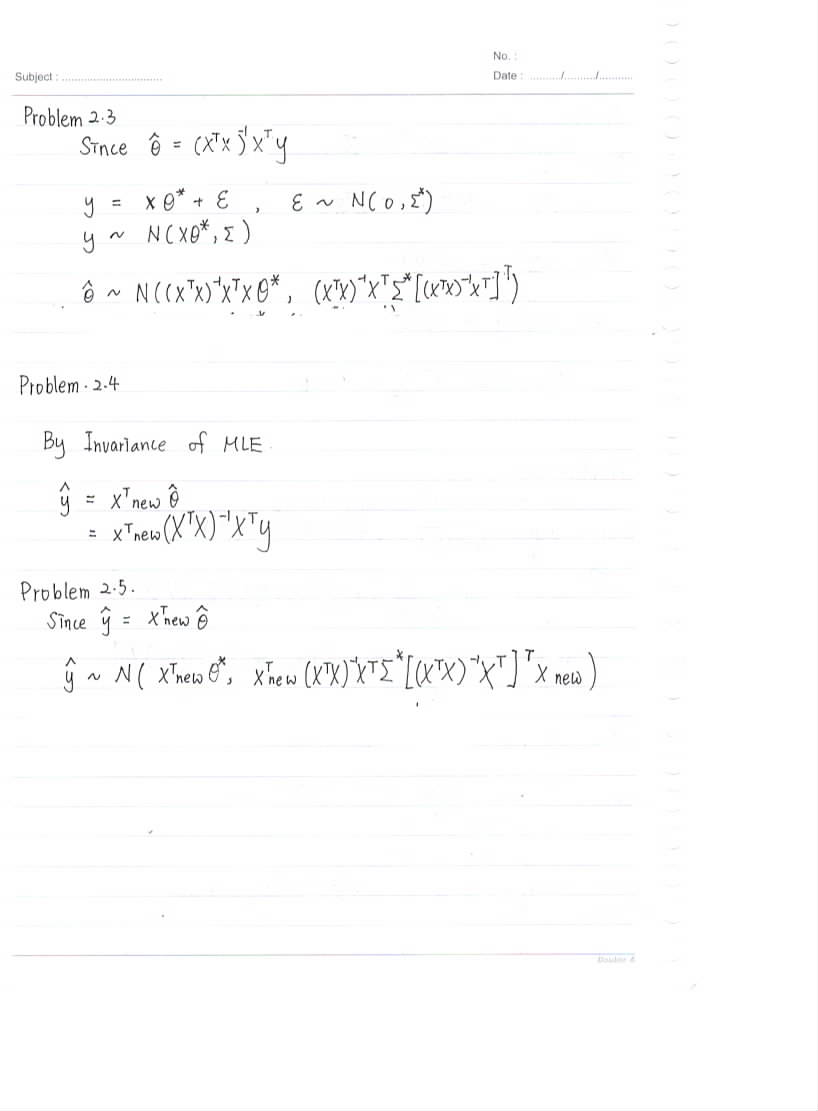 No. :
Subject : ................................ Date : ........../........../...........
Problem 2.3
Since θ̂ = (XᵀX)⁻¹Xᵀy
y = Xθ* + ε , ε ~ N(0, Σ*)
y ~ N(Xθ*, Σ)
θ̂ ~ N((XᵀX)⁻¹XᵀXθ*, (XᵀX)⁻¹XᵀΣ*[(XᵀX)⁻¹Xᵀ]ᵀ)
Problem. 2.4
By Invariance of MLE.
ŷ = xᵀnew θ̂
= xᵀnew(XᵀX)⁻¹Xᵀy
Problem 2.5.
Since ŷ = xᵀnew θ̂
ŷ ~ N( xᵀnew θ*, xᵀnew (XᵀX)⁻¹XᵀΣ*[(XᵀX)⁻¹Xᵀ]ᵀx new )
Double A